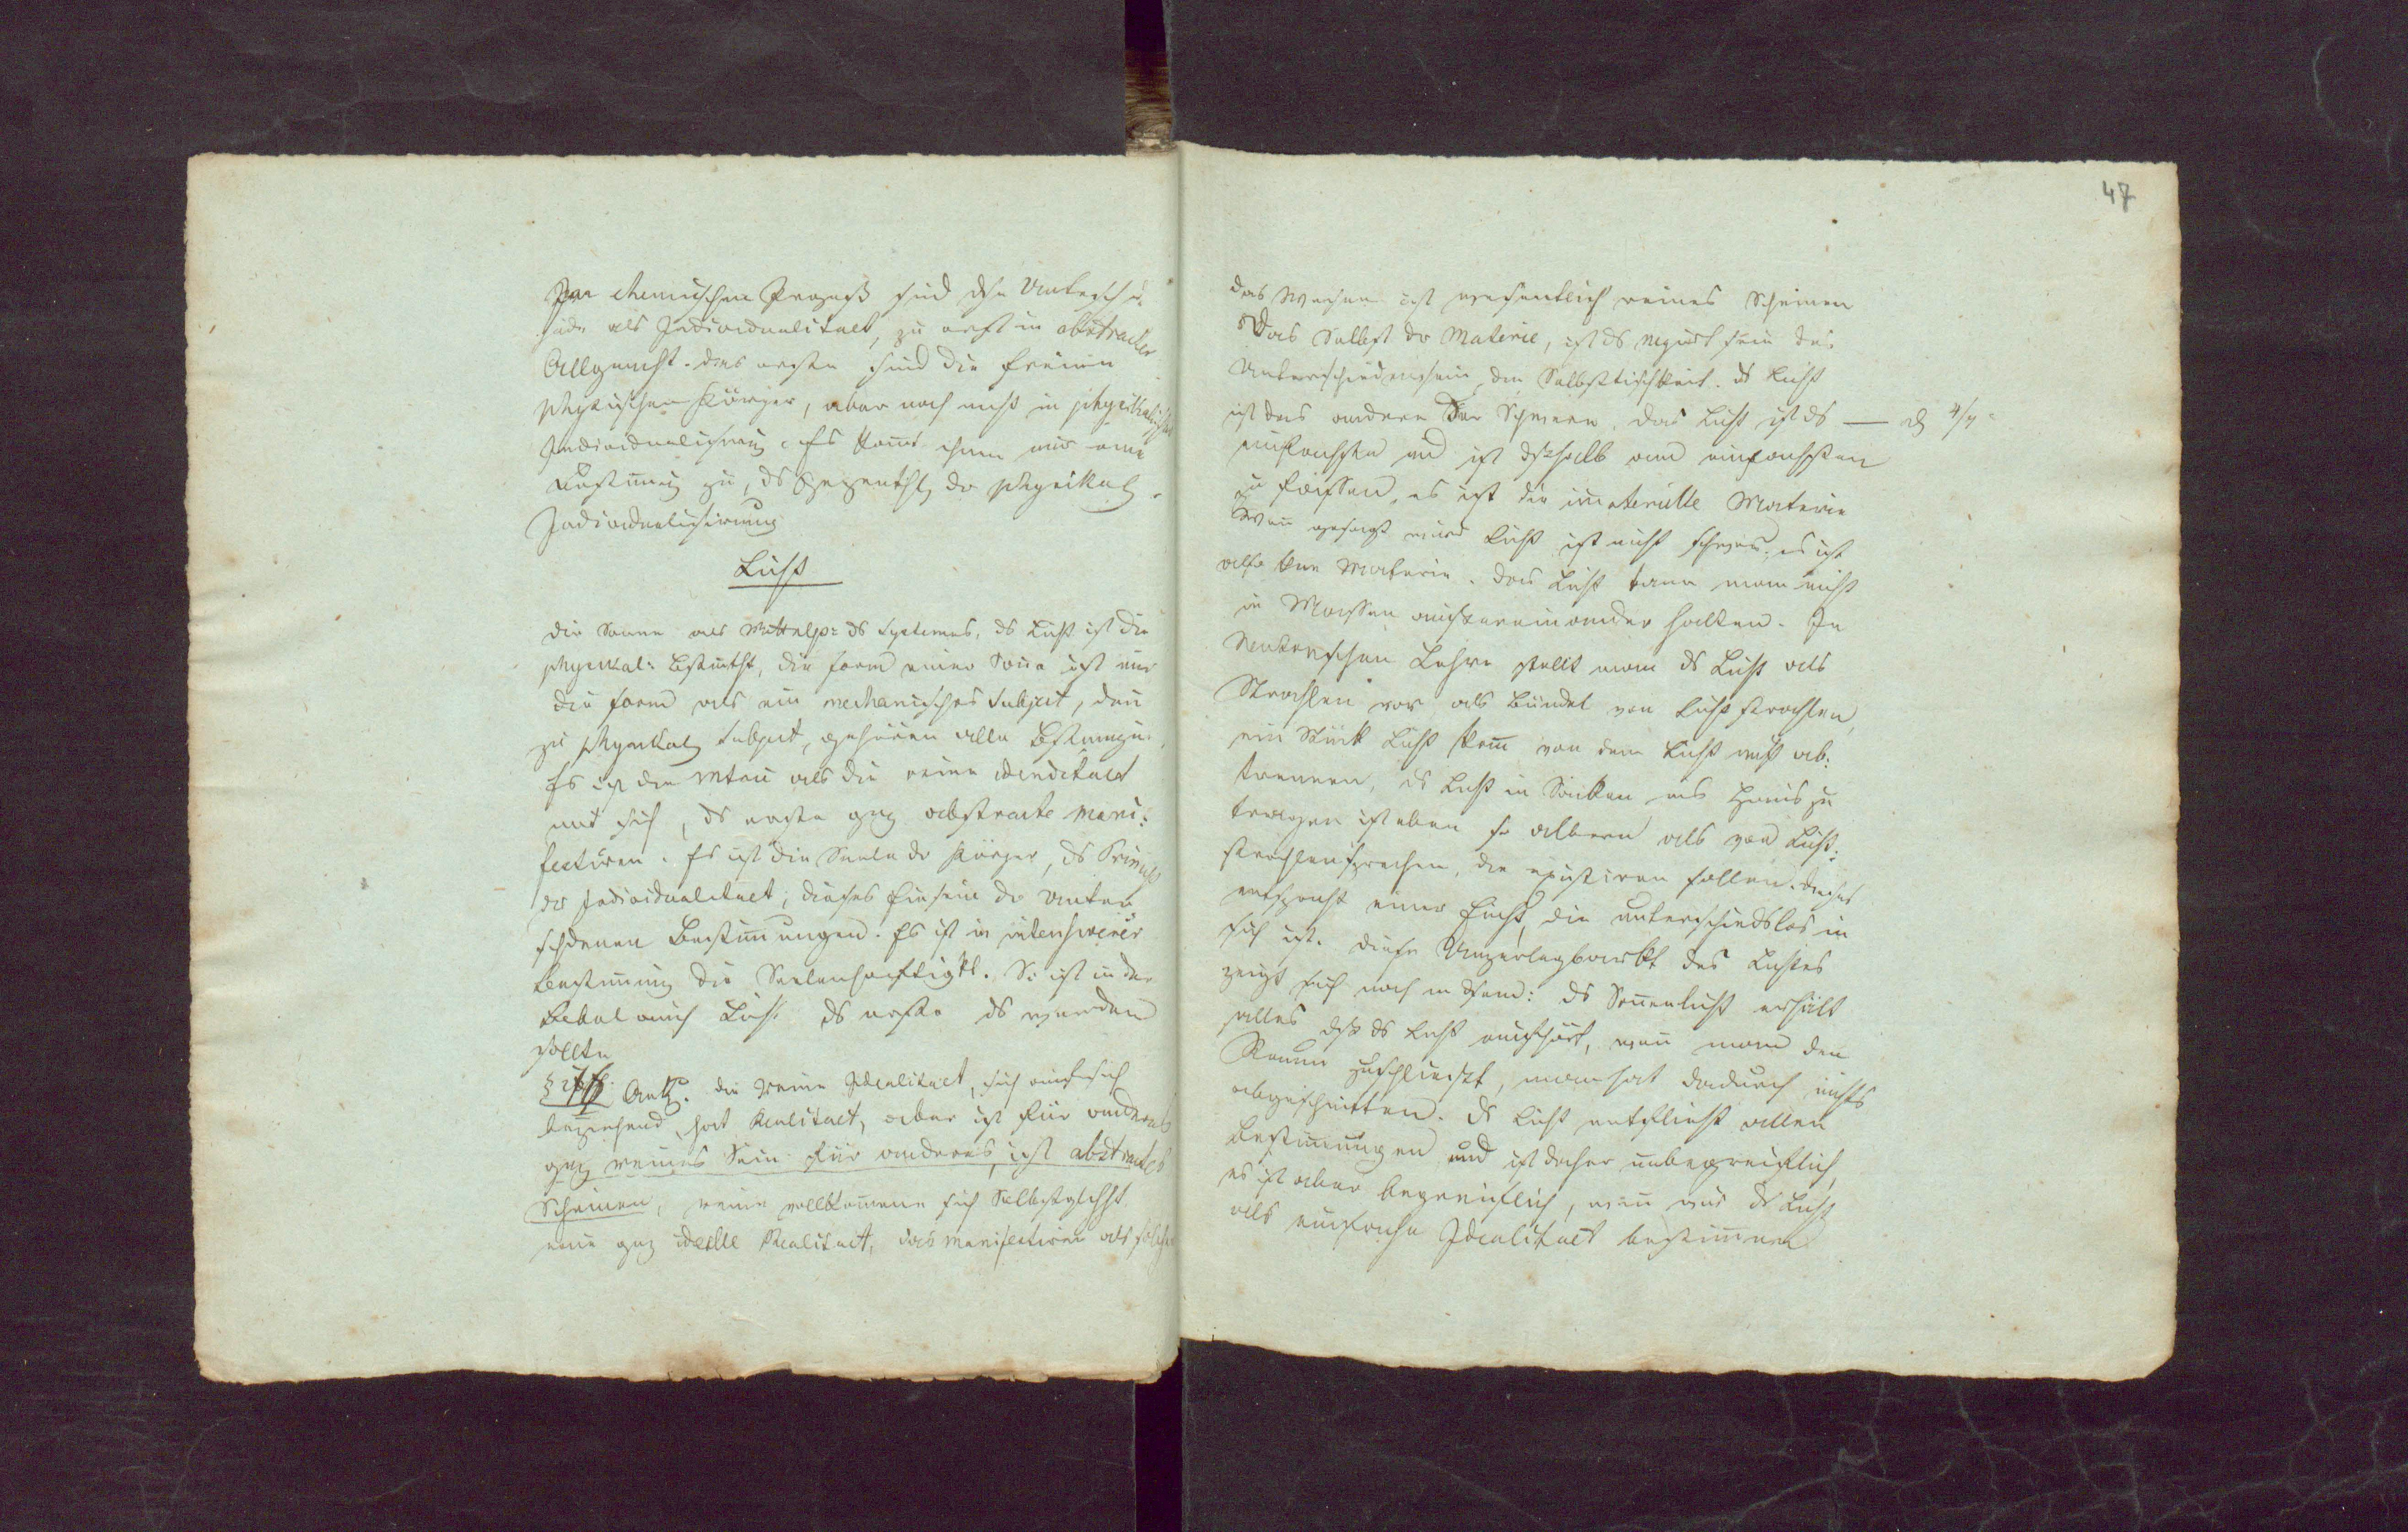 Im chemischen Prozeß sind dse Untersch:
als Individualitaet, zu erst in abstracter
Allgemht. das erste sind die freien
physischen Körper, aber noch nicht in physikalischer
Individualisirung. Es komt ihnen nur eine
Bestimung zu, ds Gegenthl der physikal
Individualisirung
Licht
die Sonne als Mittelp: ds Systemes, ds Licht ist die
physikal: Bstimtht, die form einer Sone ist nur
die form als ein mechanisches Subject, den
zu physikal Subject, gehören alle Bstimungen.
Es ist die als die reine identitaet
mit sich, ds erste gnz abstracte mani:
festiren. Es ist die Seele der Körper, ds Princip
der Individualitaet; dieses Einsein der unter
schdenen Bestimungen. Es ist in intensiverer
Bestimung die Seelenhaftigkt. So ist in der
Bibel auch Licht ds erste ds werden
sollte
§ Ank. die reine Idealitaet, sich auf sich
beziehend, hat Realitaet, aber ist für anderes
gnz reines Sein für anderes, ist abstractes
Scheinen, reine vollkomene sich Selbstglchht
eine gnz ideelle Realitaet, das manifestiren als solches
47
das Wesen ist wesentlich reines Scheinen
Das Selbst der Materie, ist ds negirt sein des
Unterschiedenseins, der Selbstischkeit. ds Licht
ist das andere der Schwere. das Licht ist ds —
einfachste und ist dshalb am einfachsten
zu fassen, es ist die imaterielle Materie
Wen gesagt wird Licht ist nicht schwer, es ist
also kne Materie. das Licht kann man nicht
in Massen auseinander halten. In
Neutonschen Lehre stellt man ds Licht als
Strahlen vor als Bündel von Lichtstrahlen,
ein Stück Licht kann von dem Licht nicht ab:
trennen, ds Licht in Säcken ins Haus zu
tragen ist eben so albern als von Licht:
strahlen sprechen, die existiren sollen. dieses
entspricht einer Einht, die unterschiedslos in
sich ist. diese Unzerlegbarkt des Lichtes
zeigt sich noch in dem: ds Sonenlicht erhält
alles dß ds Licht aufhört, wen man den
Raum zuschliesst, man hat dadurch nichts
abgeschnitten. ds Licht entflieht allen
Bestimungen und ist daher unbegreiflich,
es ist aber begreiflich, wen wir ds Licht
als einfache Idealitaet bestimen